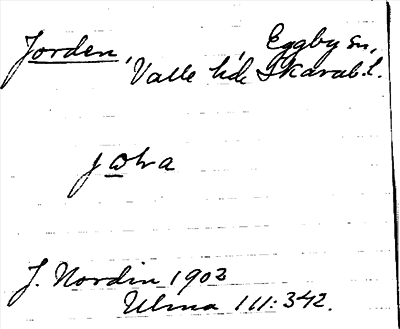 Jorden, Eggby sn,
Valle hd Skarab.l.
jωka
J. Nordin 1903
Ulma 111:342.